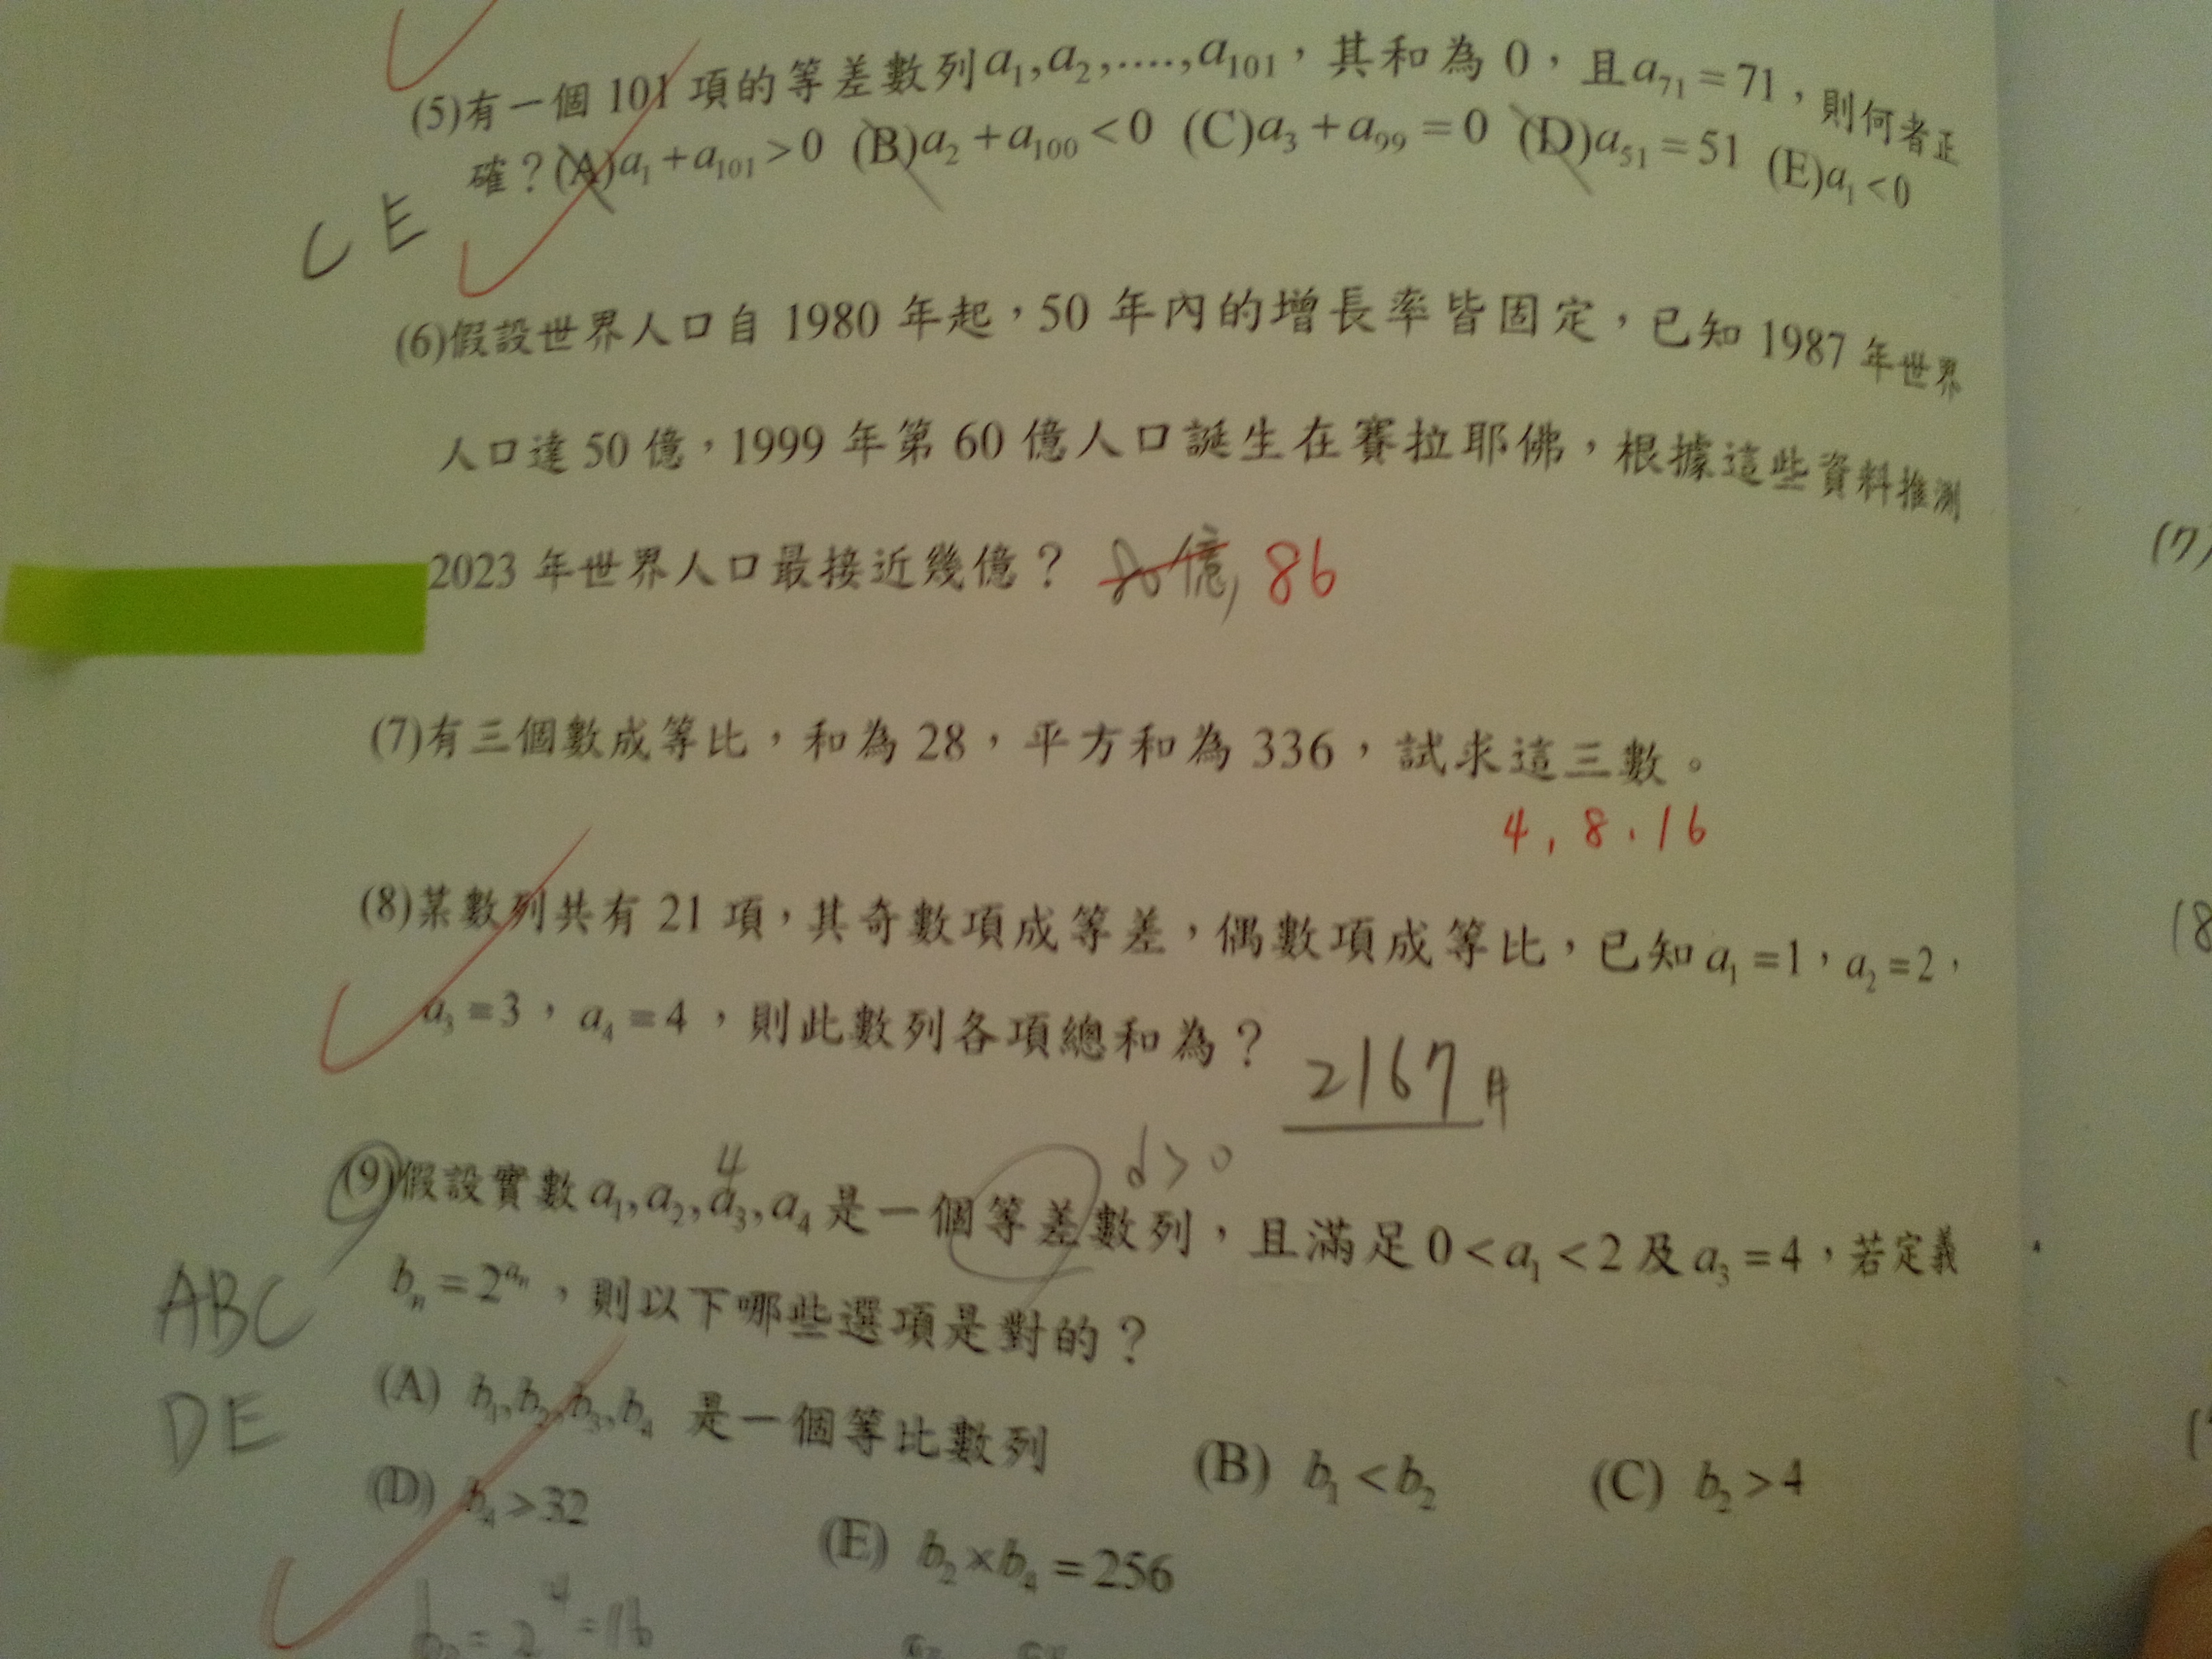 (5)有一個 101 項的等差數列a₁,a₂,....,a₁₀₁，其和為 0，且a₇₁=71，則何者正
確？(A)a₁+a₁₀₁>0 (B)a₂+a₁₀₀<0 (C)a₃+a₉₉=0 (D)a₅₁=51 (E)a₁<0
C E
(6)假設世界人口自 1980 年起，50 年內的增長率皆固定，已知 1987 年世界
人口達 50 億，1999 年第 60 億人口誕生在賽拉耶佛，根據這些資料推測
2023 年世界人口最接近幾億？ 80億, 86
(7)
(7)有三個數成等比，和為 28，平方和為 336，試求這三數。
4, 8, 16
(8)某數列共有 21 項，其奇數項成等差，偶數項成等比，已知a₁=1，a₂=2，
(8
a₃=3，a₄=4，則此數列各項總和為？
2167
4 d>0
(9)假設實數a₁,a₂,a₃,a₄是一個等差數列，且滿足0<a₁<2及a₃=4，若定義
bₙ=2^(aₙ)，則以下哪些選項是對的？
ABC
DE
(A) b₁,b₂,b₃,b₄ 是一個等比數列 (B) b₁<b₂ (C) b₂>4
(D) b₄>32 (E) b₂×b₄=256
=2⁴=16